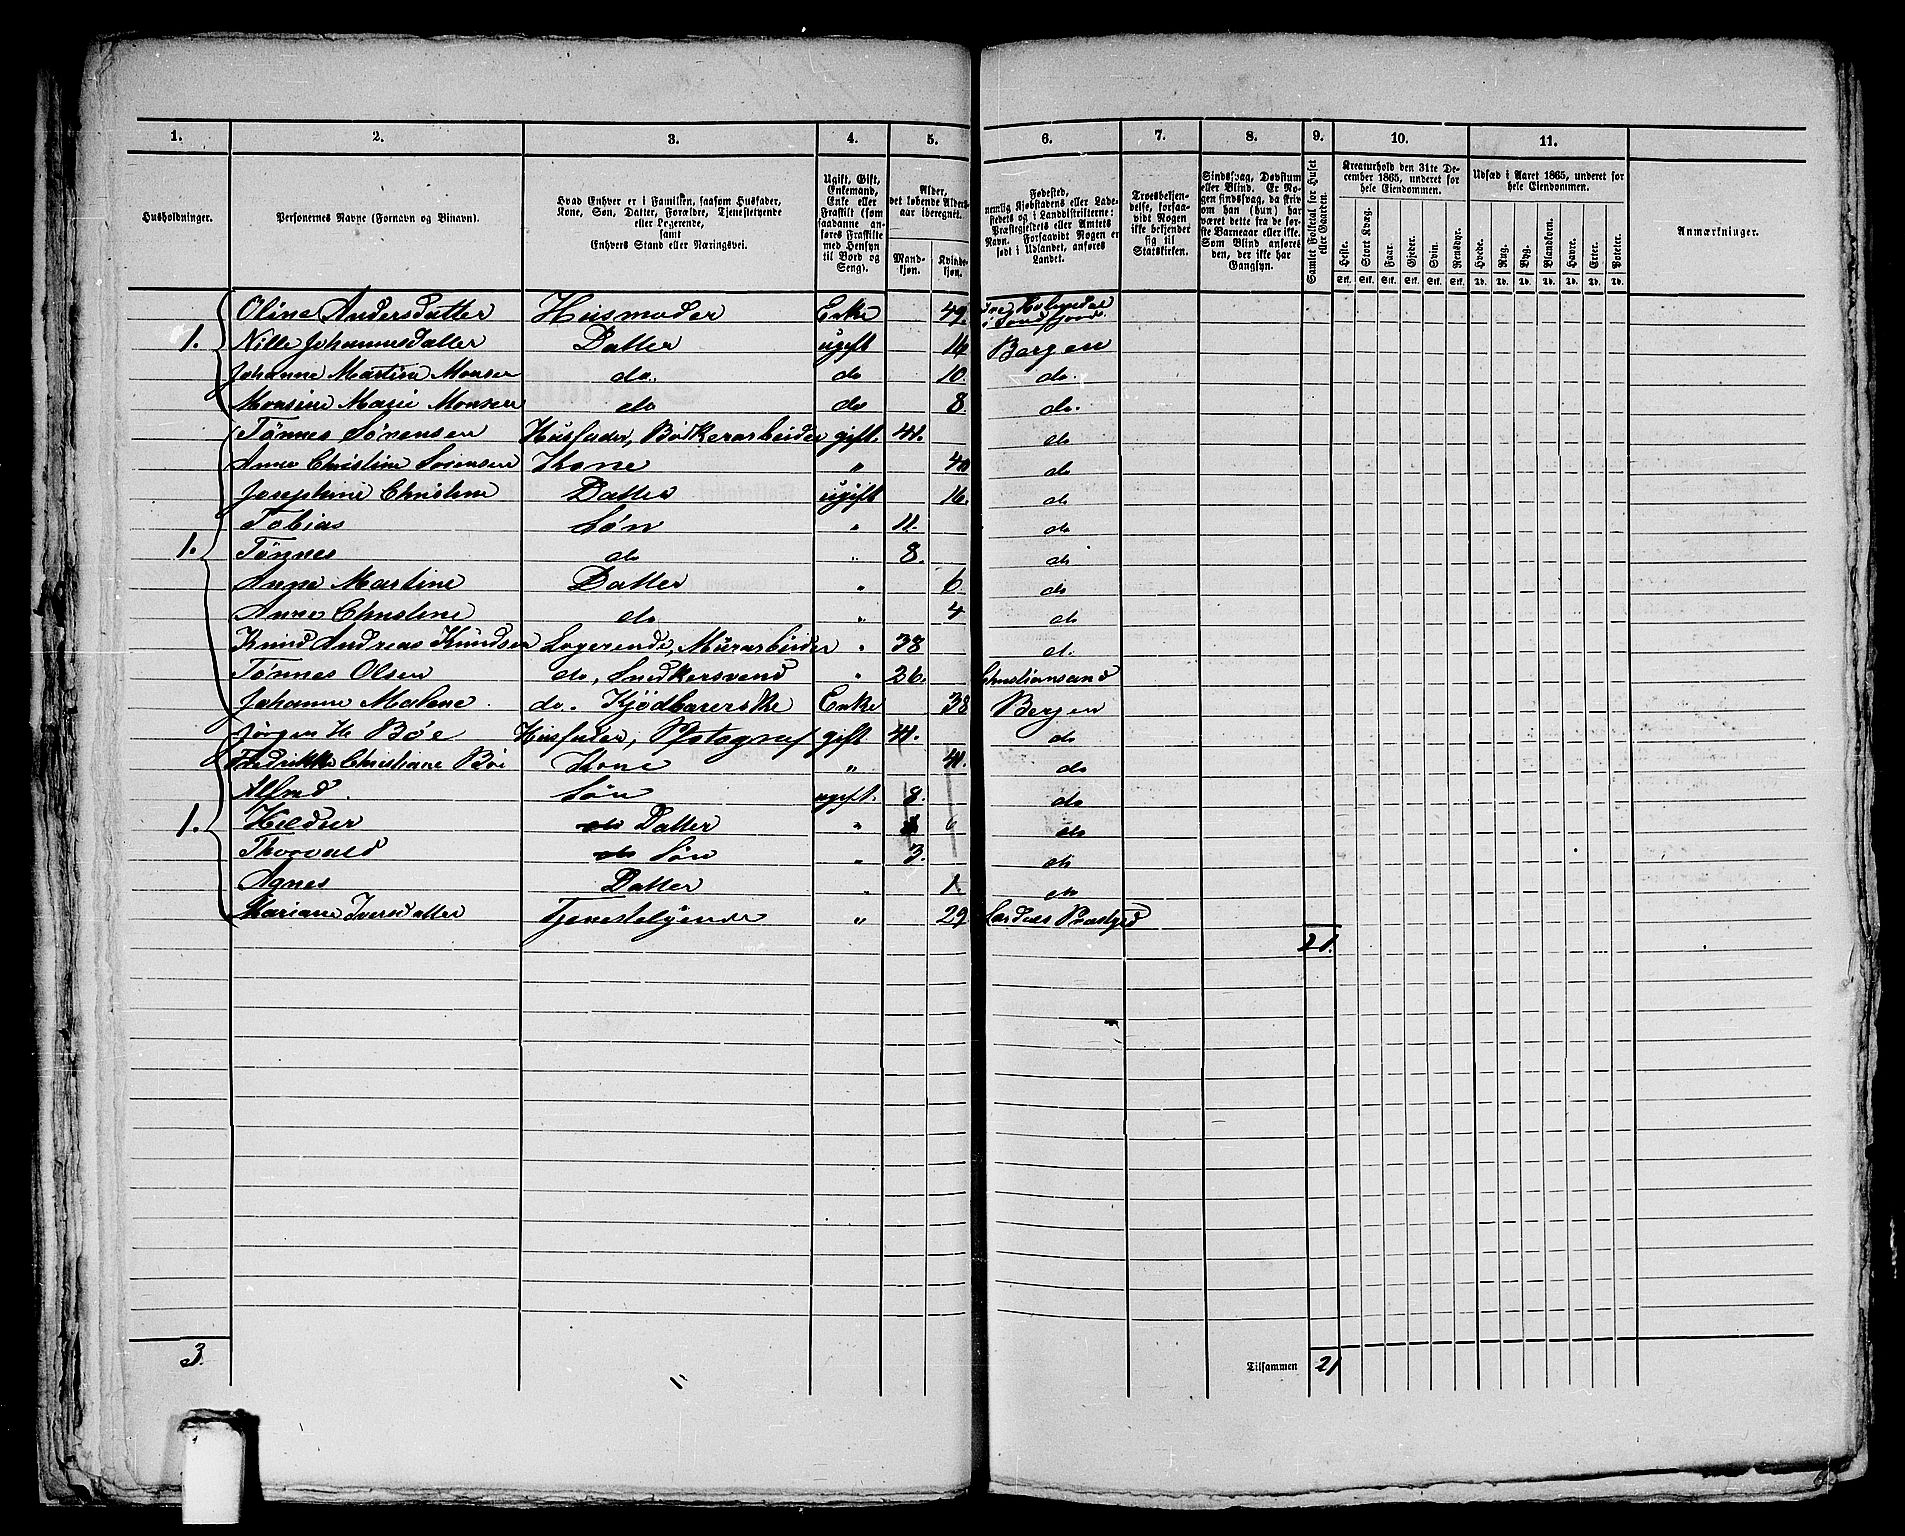 1. 2. 3. 4. 5. 6. 7. 8. 9. 10. 11.
Husholdninger.
Personernes Navne (Fornavn og Binavn).
Hvad Enhver er i Familien, saasom Husfader,
Kone, Søn, Datter, Forældre, Tjenestetyende
eller Logerende,
samt
Enhvers Stand eller Næringsvei.
Ugift, Gift,
Enkemand,
Enke eller
Fraskilt (som
saadanne an-
føres Fraskilte
med Hensyn
til Bord og
Seng).
Alder,
det løbende Alders-
aar iberegnet.
Mand-
kjøn.
Kvinde-
kjøn.
Fødested,
nemlig Kjøbstadens eller Lade-
stedets og i Landdistrikterne:
Præstegjeldets eller Amtets
Navn. Forsaavidt Nogen er
født i Udlandet, anføres
Landet.
Troesbekjen-
delse, forsaa-
vidt Nogen
ikke bekjender
sig til
Statskirken.
Sindssvag, Døvstum
eller Blind. Er No-
gen sindssvag, da skriv
om han (hun) har
været dette fra de før-
ste Barneaar eller ikke.
Som Blind anføres
den, der ikke har
Gangsyn.
Samlet Folketal for Huset
eller Gaarden.
Kreaturhold den 31te De-
cember 1865, underet for
hele Eiendommen.
Heste. Stort Kvæg. Faar. Gjeder. Svin. Rensdyr.
Stk. Stk. Stk. Stk. Stk. Stk.
Udsæd i Aaret 1865, underet for
hele Eiendommen.
Hvede. Rug. Byg. Blandkorn. Havre. Erter. Poteter.
Td. Td. Td. Td. Td. Td. Td.
Anmærkninger.
Oline Andersdatter Husmoder Enke 49. Holmedal i Søndfjord
1. Nille Johannesdatter Datter ugift 16 Bergen
Johanne Martine Monsen do. do 10. do.
Monsine Marie Monsen do do 8. do.
Tönnes Sörensen Husfader, Bödkerarbeider gift. 41. do
Anne Christine Sörensen Kone " 40 do
Josephine Christine Datter ugift 16. do
Tobias Søn " 11. do
1. Tönnes do " 8. do
Anne Martine Datter " 6. do
Anne Christine do " 4 do
Knud Andreas Knudsen Logerende, Murarbeider " 38 d.
Tønnes Olsen do, Snedkersvend " 26. Christiansand
Johanne Malene. do. Kjödbærerske Enke 38 Bergen
Jørgen H. Böe Husfader, Photograf gift 41. do
Fredrikke Christiane Böe Kone " 41. do
Alfred. Søn ugift. 8. do
1. Hildur do Datter " 6 do
Thorvald do Søn " 3. do
Agnes Datter " 1. do
Mariane Iversdatter Tjenestetyende " 29 Præstgjd
21.
3.
Tilsammen 21